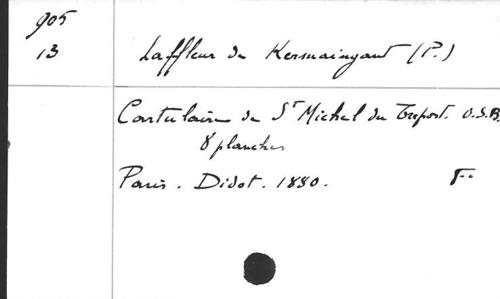 905
13
Laffleur de Kermaingant (P.)
Cartulaire de St Michel du Treport. O.S.B.
8 planches
Paris. Didot. 1880.